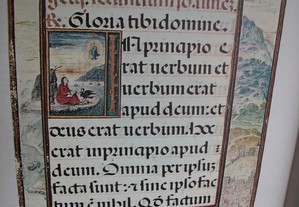 ℟. Gloria tibi domine.
IN principio e
rat uerbum et
uerbum erat
apud deum: et
deus erat uerbum. Hoc
erat in principio apud
deum. Omnia per ipsuʒ
facta sunt: ⁊ sine ipso fac
tum ẽ nihil. Qð factum